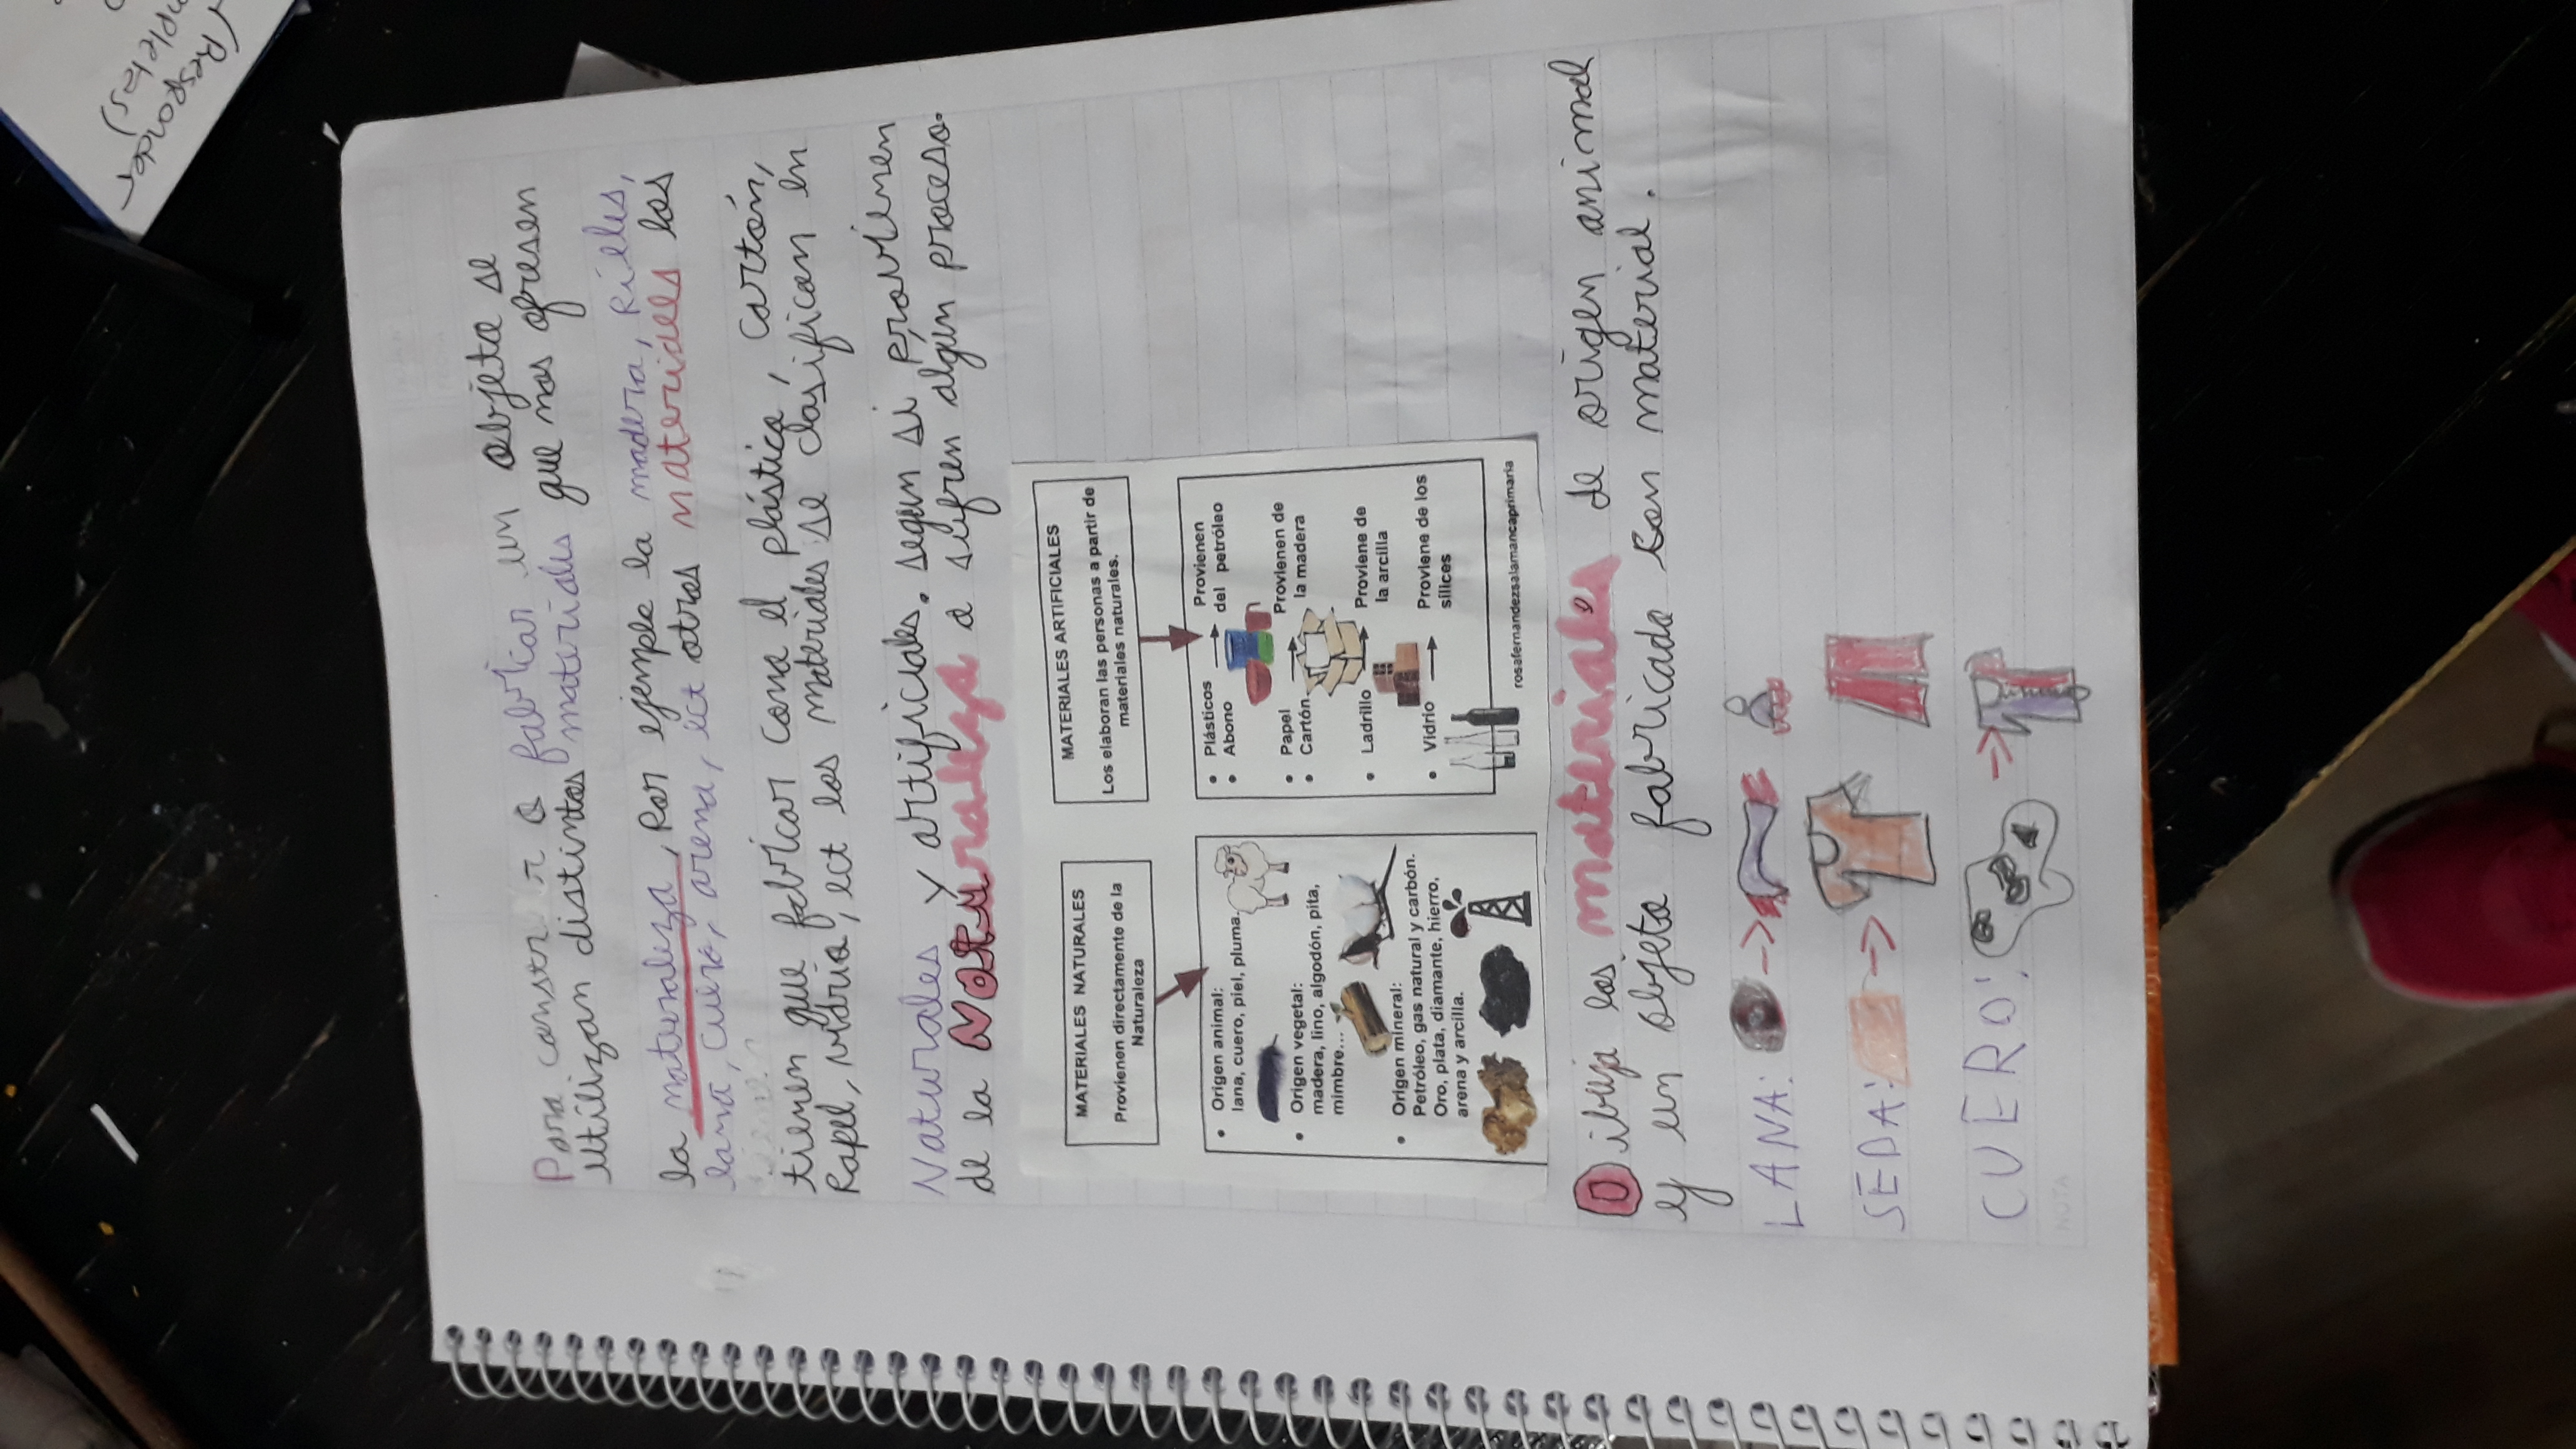 Para constr r o fabricar un objeto se
utilizan distintos materiales que nos ofresen
la naturaleza, por ejemplo la madera, pieles,
lana, cuero, arena, ect otros materiales los
tienen que fabricar como el plástico, cartón,
papel, vidrio, ect los materiales se clasifican en
Naturales y artificiales. segun si provienen
de la Naturaleza o sufren algun proceso.
MATERIALES NATURALES
Provienen directamente de la
Naturaleza
• Origen animal:
lana, cuero, piel, pluma,
• Origen vegetal:
madera, lino, algodón, pita,
mimbre...
• Origen mineral:
Petróleo, gas natural y carbón.
Oro, plata, diamante, hierro,
arena y arcilla.
MATERIALES ARTIFICIALES
Los elaboran las personas a partir de
materiales naturales.
• Plásticos → Provienen
• Abono del petróleo
• Papel → Provienen de
• Cartón la madera
• Ladrillo → Proviene de
la arcilla
• Vidrio → Proviene de los
sílices
rosafernandezsalamancaprimaria
Dibuja los materiales de origen animal
y un objeto fabricado con material.
LANA:
SEDA:
CUERO:
NOTA
(Responder